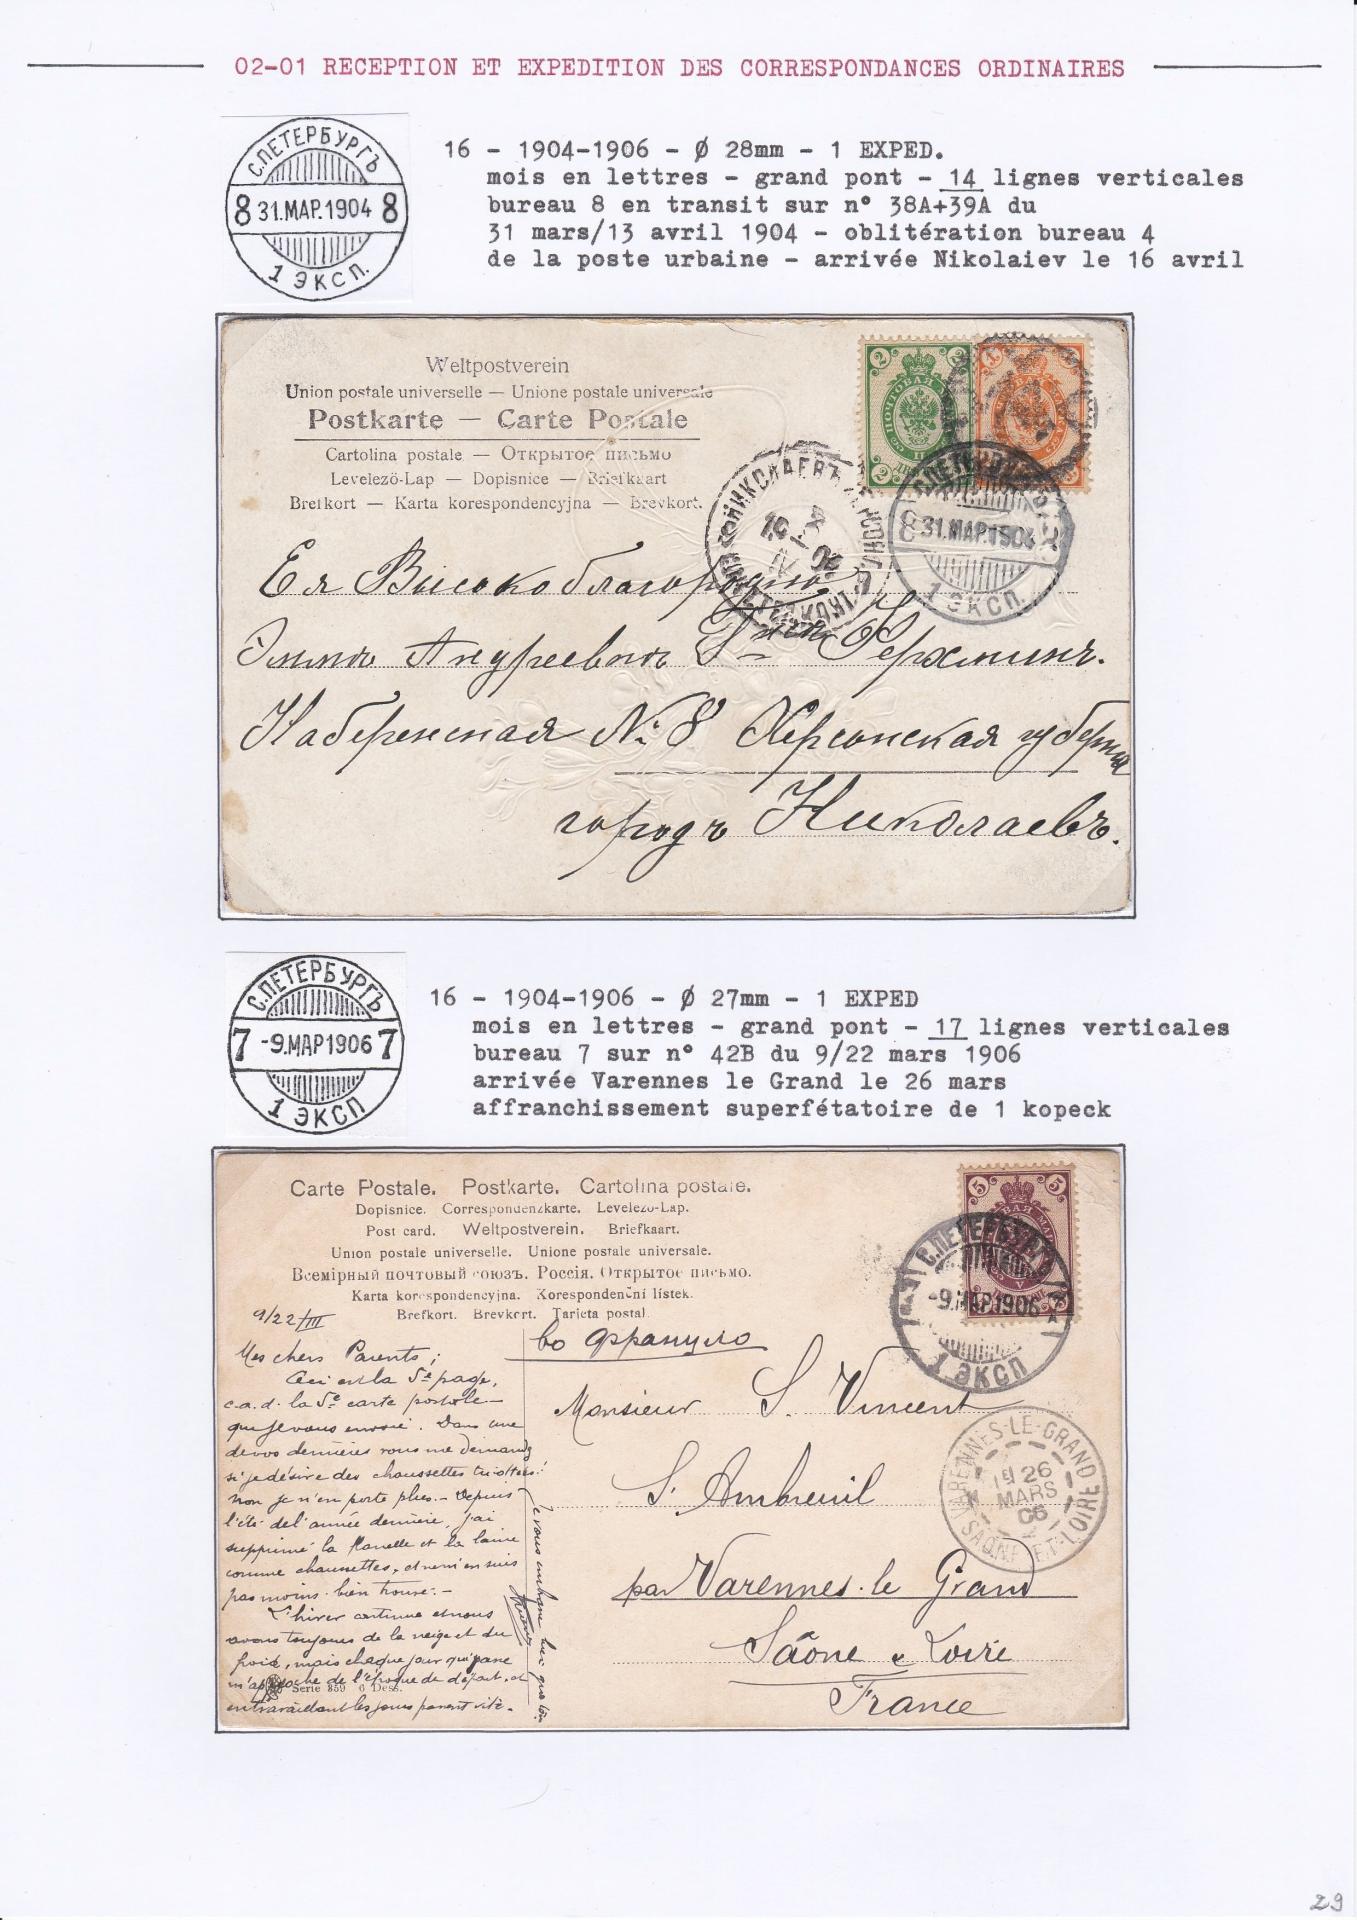 02-01 RECEPTION ET EXPEDITION DES CORRESPONDANCES ORDINAIRES
С.ПЕТЕРБУРГЪ
8 31.МАР.1904 8
1 ЭКСП.
16 - 1904-1906 - Ø 28mm - 1 EXPED.
mois en lettres - grand pont - 14 lignes verticales
bureau 8 en transit sur n° 38A+39A du
31 mars/13 avril 1904 - oblitération bureau 4
de la poste urbaine - arrivée Nikolaiev le 16 avril
Weltpostverein
Union postale universelle — Unione postale universale
Postkarte — Carte Postale
Cartolina postale — Открытое письмо
Levelező-Lap — Dopisnice — Briefkaart
Brefkort — Karta korespondencyjna — Brevkort.
2 2
ПОЧТОВАЯ
2
1
НИКОЛАЕВЪ
С.ПЕТЕРБУРГЪ
8 31.МАР.1904
1 ЭКСП.
Ея Высокоблагородию
Эмми Андреевны
Набережная № 8 Херсонская губерния
городъ Николаевъ.
С.ПЕТЕРБУРГЪ
7 -9.МАР.1906 7
1 ЭКСП
16 - 1904-1906 - Ø 27mm - 1 EXPED
mois en lettres - grand pont - 17 lignes verticales
bureau 7 sur n° 42B du 9/22 mars 1906
arrivée Varennes le Grand le 26 mars
affranchissement superfétatoire de 1 kopeck
Carte Postale. Postkarte. Cartolina postale.
Dopisnice. Correspondenzkarte. Levelező-Lap.
Post card. Weltpostverein. Briefkaart.
Union postale universelle. Unione postale universale.
Всемірный почтовый союзъ. Россія. Открытое письмо.
Karta korespondencyjna. Korespondenční lístek.
Brefkort. Brevkort. Tarjeta postal.
5 5
С.ПЕТЕРБУРГЪ
-9.МАР.1906
1 ЭКСП
9/22/III
во Францию
Mes chers Parents;
Ceci est la 5e page,
c.a.d. la 5e carte postale
que je vous envoie. Dans une
de vos dernières vous me demandez
si je désire des chaussettes tricottées!
Non je n'en porte plus. - Depuis
l'été de l'année dernière, j'ai
supprimé la flanelle et la laine
comme chaussettes, et ne m'en suis
pas moins bien trouvé. -
L'hiver continue et nous
avons toujours de la neige et du
froid, mais chaque jour qui passe
m'approche de l'époque de départ, et
en travaillant les jours passent vite.
Je vous embrasse bien
Serie 859 6 Dess.
Monsieur S. Vincent
St Ambreuil
par Varennes-le Grand
Saône & Loire
France
VARENNES-LE-GRAND
26
MARS
06
SAONE-ET-LOIRE
29